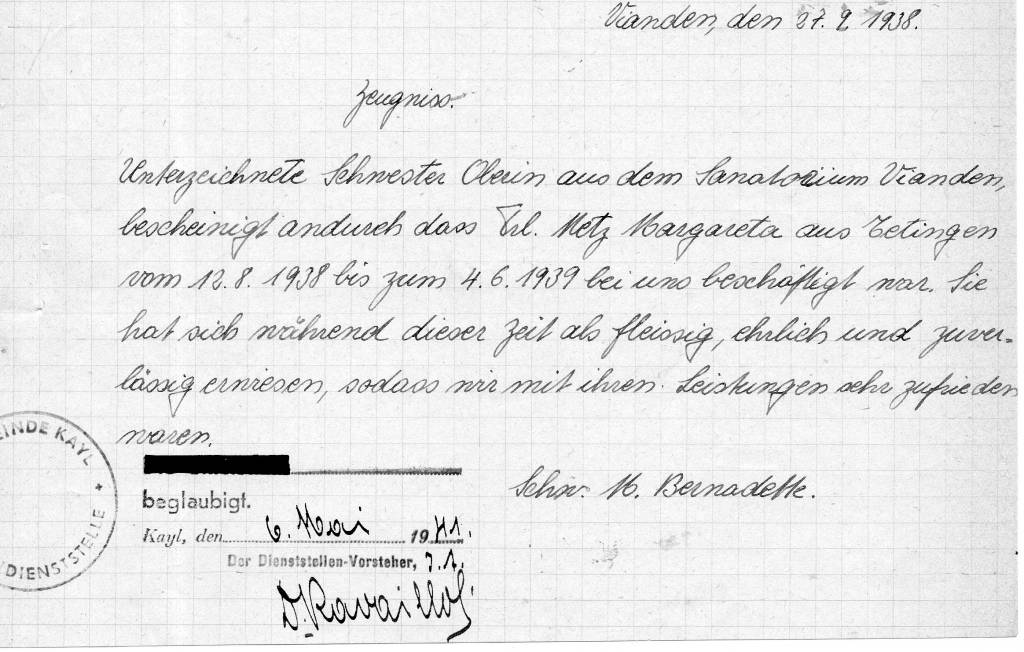 Vianden, den 27. 9. 1938.
Zeugniss.
Unterzeichnete Schwester Oberin aus dem Sanatorium Vianden,
bescheinigt andurch dass Frl. Metz Margareta aus Tetingen
vom 12. 8. 1938 bis zum 4. 6. 1939 bei uns beschäftigt war. Sie
hat sich während dieser Zeit als fleissig, ehrlich und zuver-
lässig erwiesen, sodass wir mit ihren Leistungen sehr zufrieden
waren.
Schw. M. Bernadette.
beglaubigt.
Kayl, den 6. Mai 1941.
Der Dienststellen-Vorsteher,
KAYL
DIENSTSTELLE